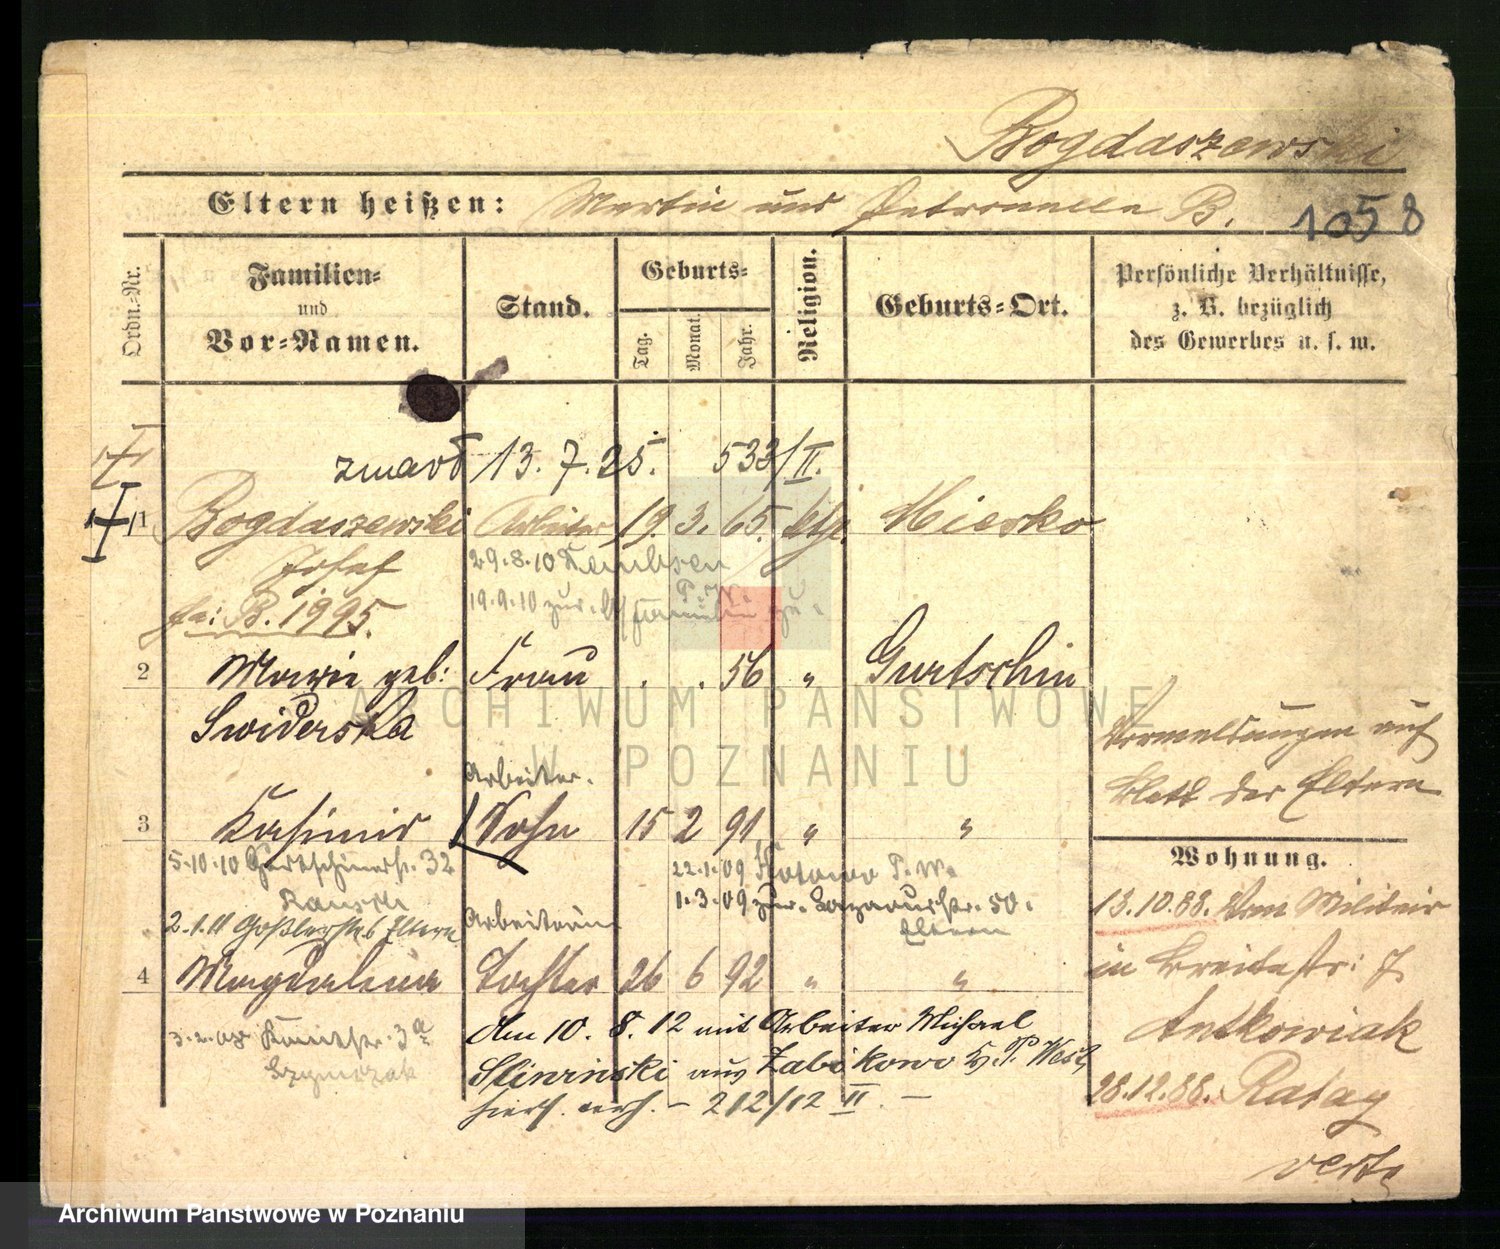 Bogdaszewski
Eltern heißen: Martin und Petronella B. 1058
Ordn.-Nr.
Familien- und Vor-Namen.
Stand.
Geburts-
Tag. Monat. Jahr.
Religion.
Geburts-Ort.
Persönliche Verhältnisse,
z. B. bezüglich
des Gewerbes u. s. w.
zmarł 13.7.25. 533/II.
1 Bogdaszewski Arbeiter 19. 3. 65. kth.
Josef
29.8.10
fa: B. 1995.
19.9.10 zur. Familie zu.
2 Marie geb: Frau . . 56 " Gurtschin
Swiderska
Arbeiter.
3 Kasimir Sohn 15 2 91 " "
5.10.10 Gurtschinerstr. 32
22.1.09 Kotowo P. W.
1.3.09 zur. Lazarusstr. 50.
Eltern
2.1.11 Goßlerstr. 6 Eltern
Arbeiterin
4 Magdalena Tochter 26 6 92 " "
3a
Szymczak
Am 10. 8. 12 mit Arbeiter Michael
Sliwinski aus Zabikowo Kr. P. West
hiers. verh. – 212/12 II. –
Vormeldungen auf
Blatt der Eltern
Wohnung.
13.10.88. Vom Militair
in Breitestr: 7.
Antkowiak
28.12.88. Rataj
verte
ARCHIWUM PAŃSTWOWE
W POZNANIU
Archiwum Państwowe w Poznaniu